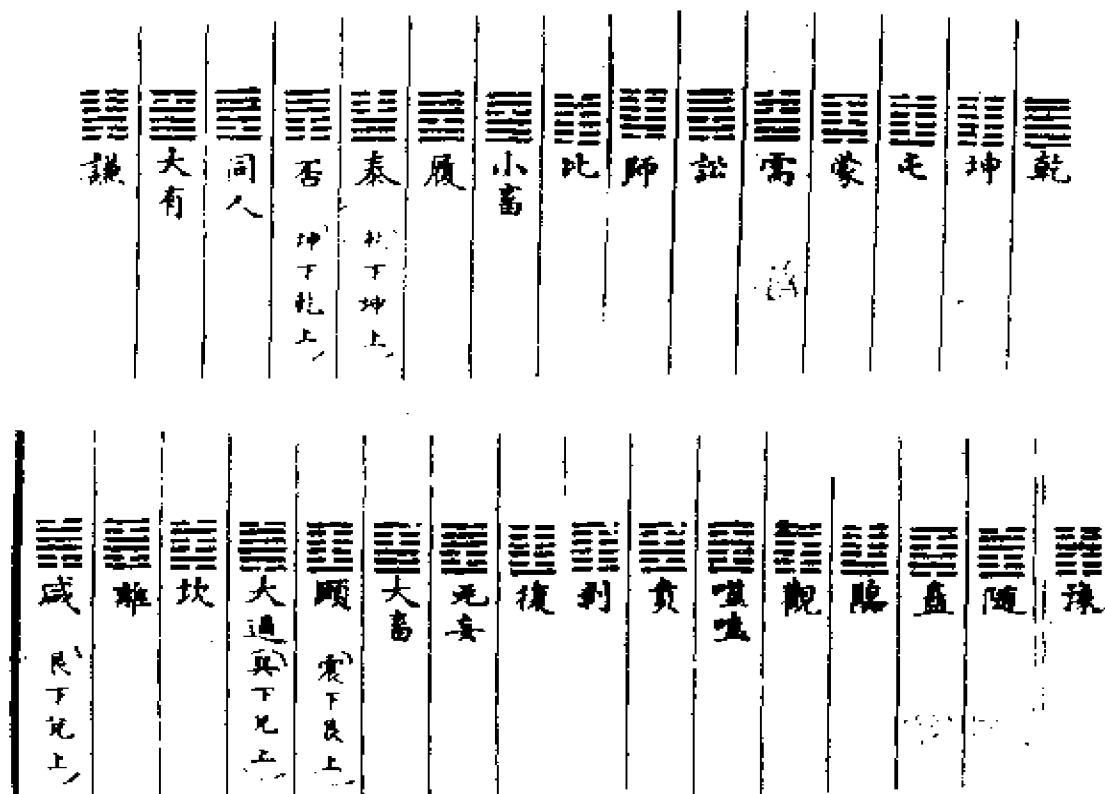 乾
坤
屯
蒙
需
訟
師
比
小畜
履
泰 乾下坤上
否 坤下乾上
同人
大有
謙
豫
隨
蠱
臨
觀
噬嗑
賁
剝
復
无妄
大畜
頤 震下艮上
大過 巽下兌上
坎
離
咸 艮下兌上